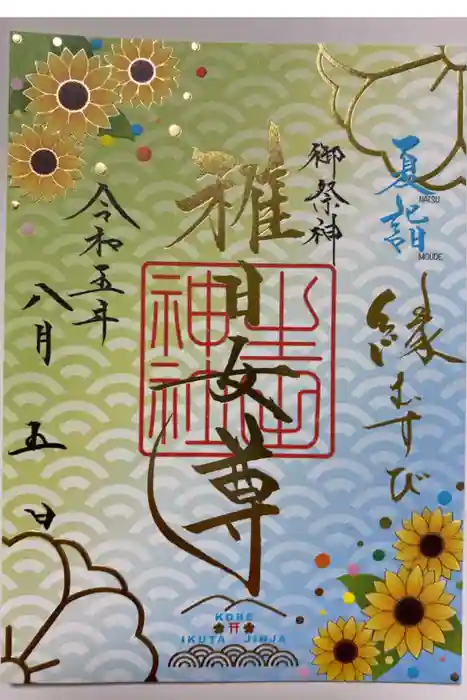 夏詣
NATSU
MOUDE
縁むすび
御祭神
稚日女尊
生田神社
令和五年
八月五日
KOBE
IKUTA JINJA